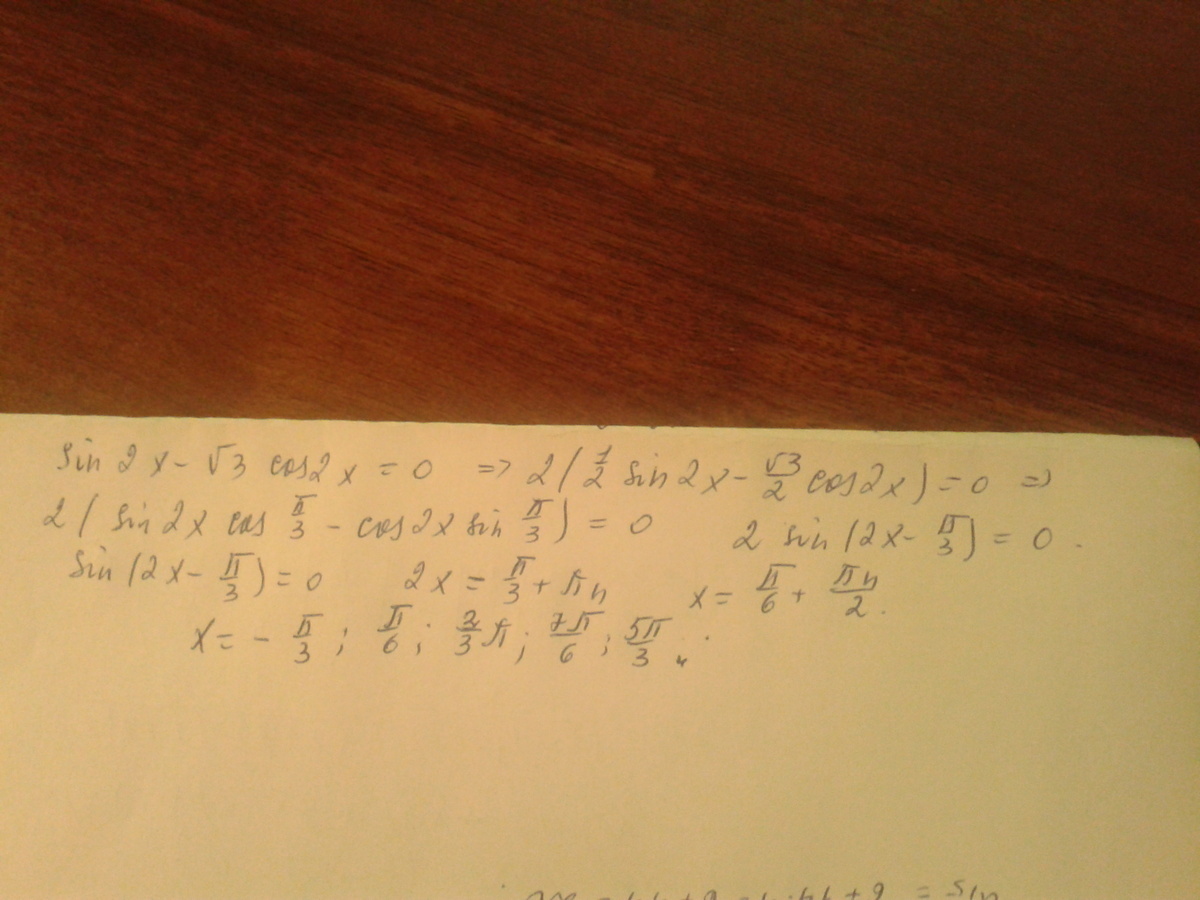 sin 2x - √3 cos2x = 0 => 2(1/2 sin 2x - √3/2 cos2x) = 0 =>
2(sin 2x cos π/3 - cos2x sin π/3) = 0 2 sin(2x - π/3) = 0.
sin(2x - π/3) = 0 2x = π/3 + πn x = π/6 + πn/2.
x = - π/3; π/6; 2/3 π; 7π/6; 5π/3